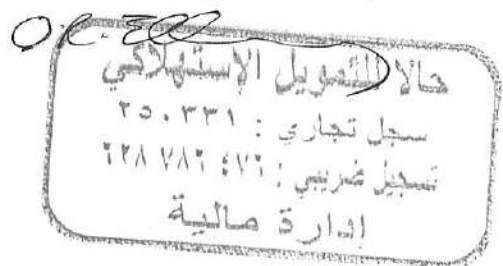 حالا للتمويل الإستهلاكي
سجل تجاري : ٢٥٠٣٣١
تسجيل ضريبي : ٤٧٦ ٧٨٢ ٢٢٨
إدارة مالية